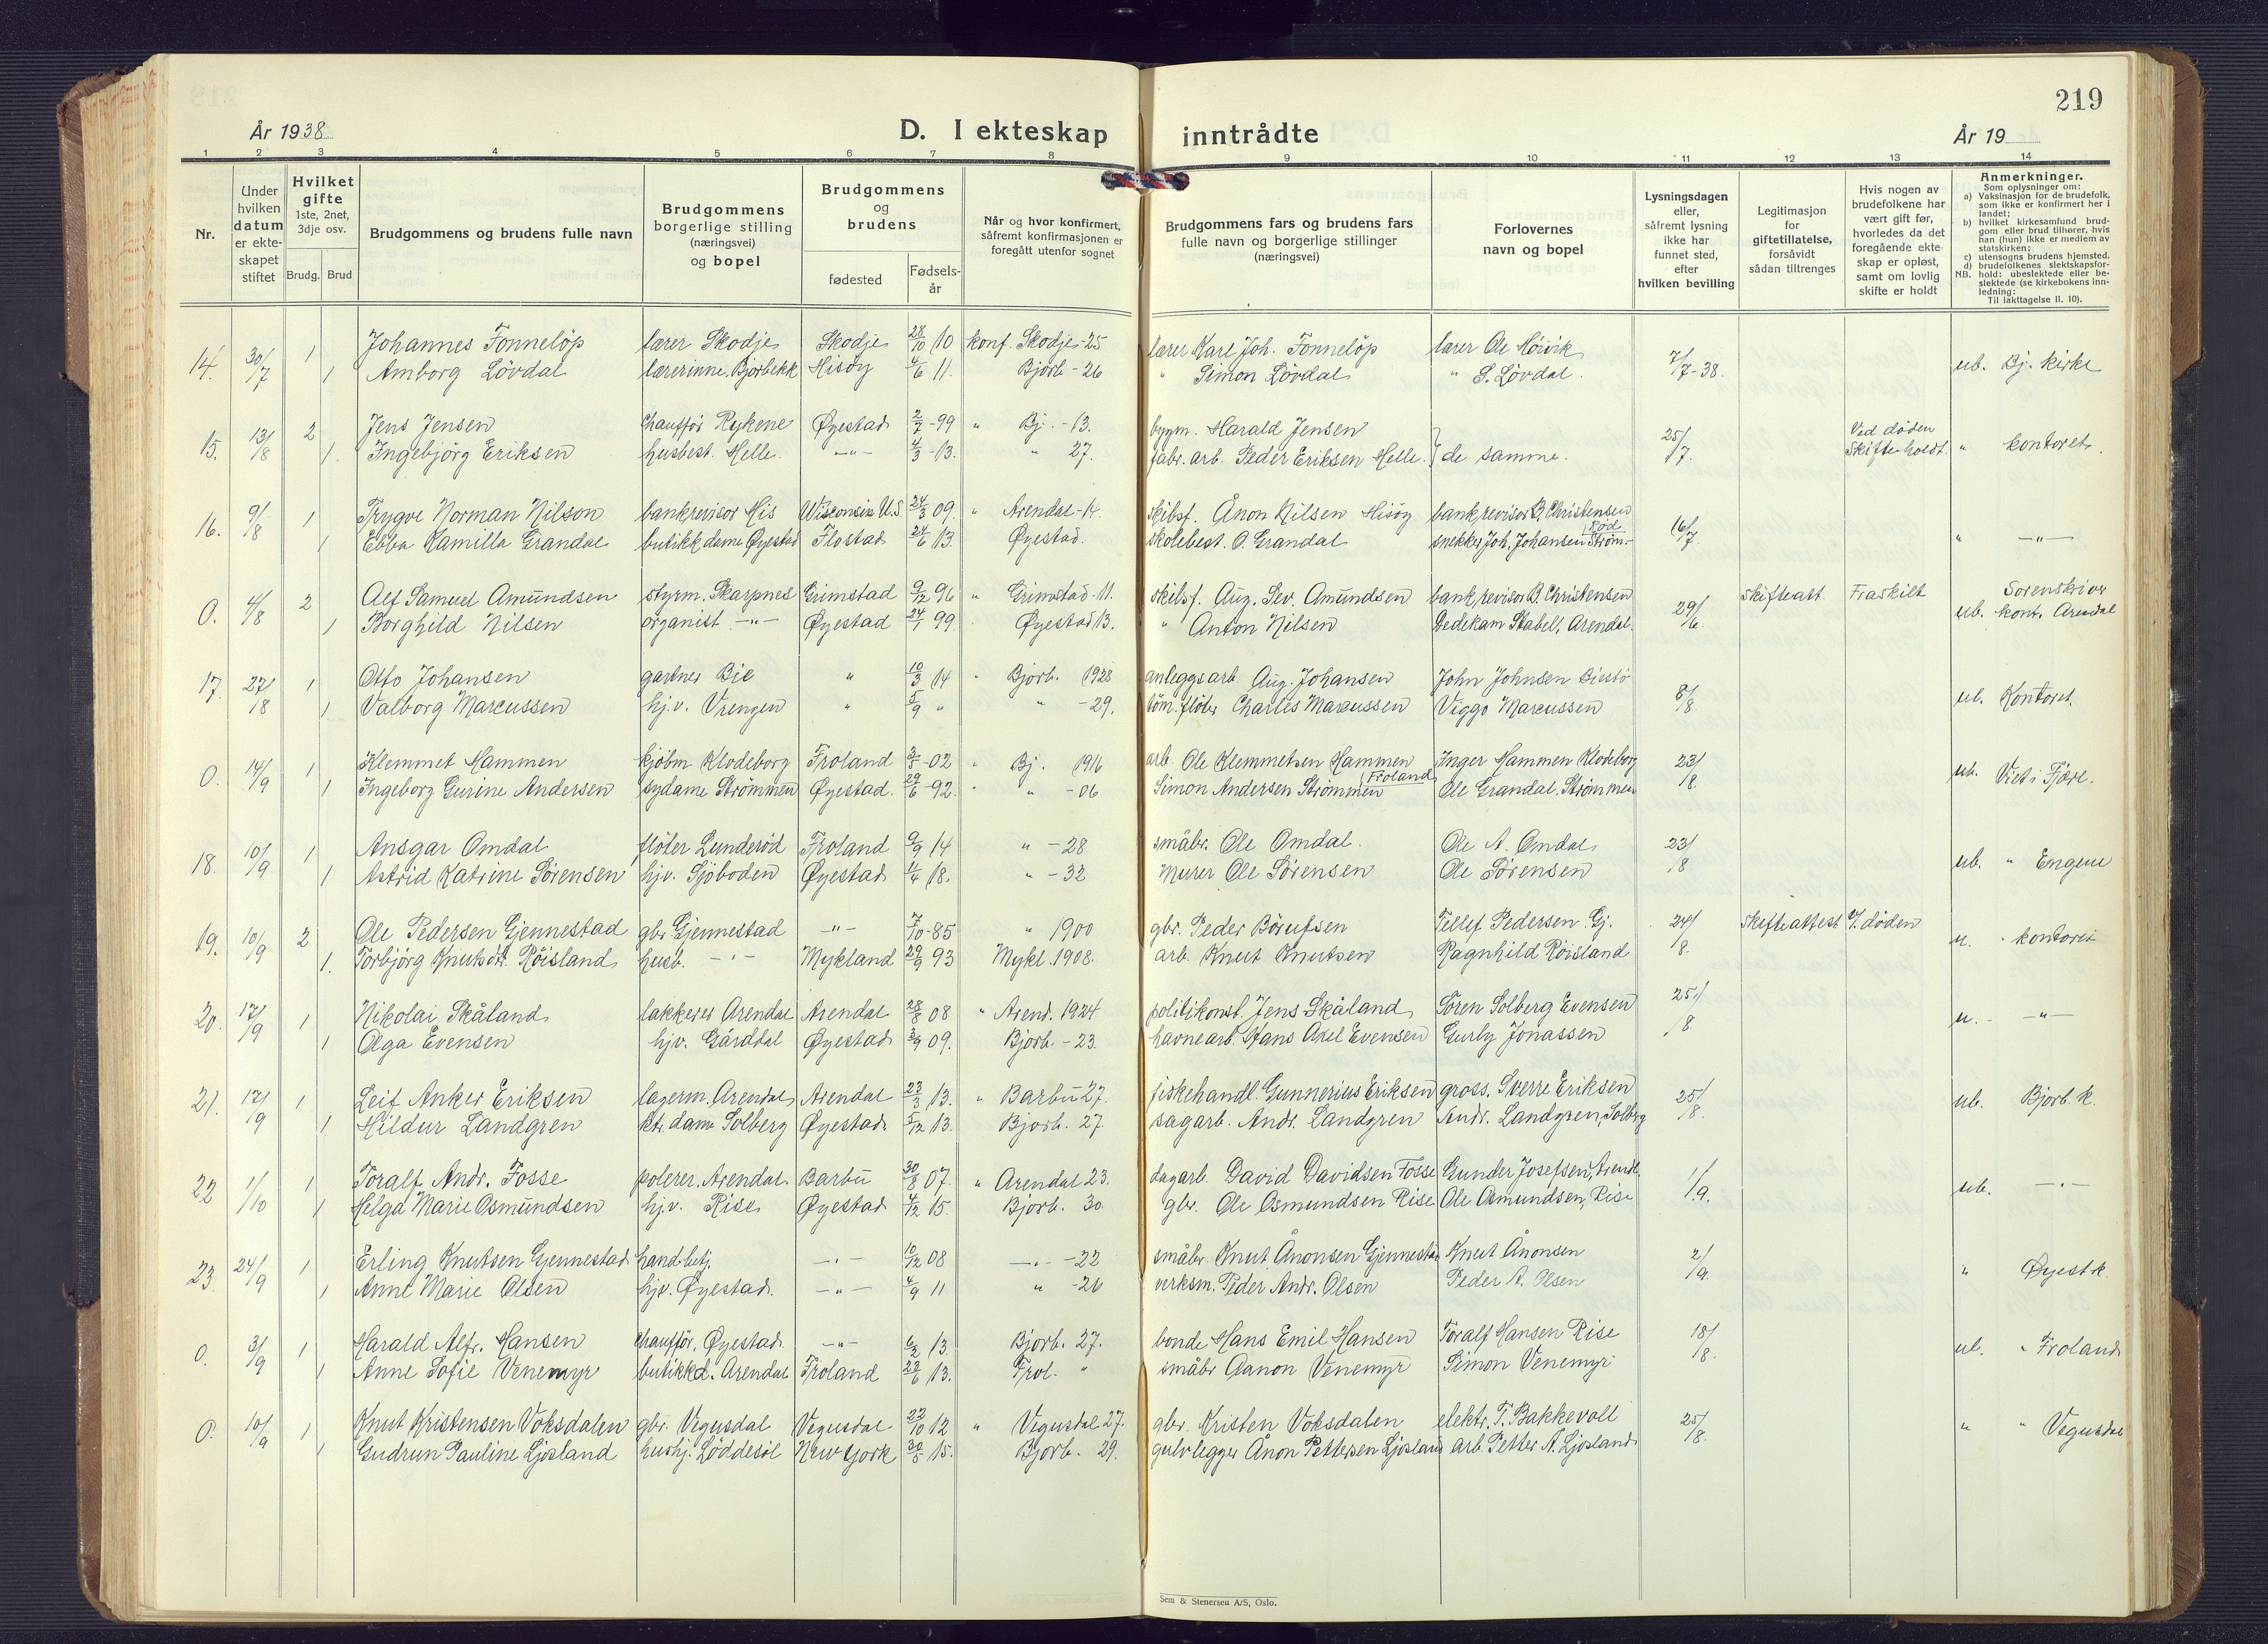 219
År 1938
D. I ekteskap
inntrådte
År 19
1 2 3 4 5 6 7 8 9 10 11 12 13 14
Nr.
Under hvilken datum er ekte-skapet stiftet
Hvilket gifte 1ste, 2net, 3dje osv.
Brudg. Brud
Brudgommens og brudens fulle navn
Brudgommens borgerlige stilling (næringsvei) og bopel
Brudgommens og brudens
fødested
Fødsels-år
Når og hvor konfirmert, såfremt konfirmasjonen er foregått utenfor sognet
Brudgommens fars og brudens fars fulle navn og borgerlige stillinger (næringsvei)
Forlovernes navn og bopel
Lysningsdagen eller, såfremt lysning ikke har funnet sted, efter hvilken bevilling
Legitimasjon for giftetillatelse, forsåvidt sådan tiltrenges
Hvis nogen av brudefolkene har vært gift før, hvorledes da det foregående ekte-skap er opløst, samt om lovlig skifte er holdt
Anmerkninger.
Som oplysninger om:
a) Vaksinasjon for de brudefolk, som ikke er konfirmert her i landet;
b) hvilket kirkesamfund brud-gom eller brud tilhører, hvis han (hun) ikke er medlem av statskirken;
c) utensogns brudens hjemsted.
d) brudefolkenes slektskapsfor-hold: ubeslektede eller be-slektede (se kirkebokens inn-ledning:
NB.
Til iakttagelse II. 10).
14. 30/7 1 Johannes Fonneløp lærer Skodje Skodje 28/10 10 konf. Skodje-25 lærer Karl Joh. Fonneløp lærer Ole Hörvik 7/7-38. ub. Bj. kirke
1 Amborg Lövdal lærerinne. Bjorbekk Hisøy 4/6 11. Bjorb-26 " Simon Lövdal " S. Lövdal.
15. 13/8 2 Jens Jensen chauffør Rykene Øyestad 2/2-99 " Bj.-13. bygm. Harald Jensen de samme. 25/7. Ved døden Skifte holdt. " kontoret.
1. Ingebjörg Eriksen husbest. Helle. -"- 4/3-13. " 27. fabr. arb. Peder Eriksen Helle.
16. 9/8 1 Trygve Norman Nilson bankrevisor His Wisconsin U.S 24/3 09. " Arendal-14. skibsf. Ånon Nilsen Hisöy bankrevisor B. Christensen 16/7. " -"-
1 Ebba Kamilla Grandal butikkdame Øyestad Flostad 24/6 13. Øyestad. skolebest. O. Grandal snekker Joh. Johansen Rød Strøm.-
0. 4/8 2 Alf Samuel Amundsen styrm. Skarpnes Grimstad 9/12 96 " Grimstad-11. skibsf. Aug. Sev. Amundsen bankrevisor B. Christensen 29/6 skifteatt. Fraskilt Sorenskriv
1 Borghild Nilsen organist -"- Øyestad 24/1 99. Øyestad 13. " Anton Nilsen Dedekam Stabel, Arendal. ub. kont. Arendal
17. 27/8 1 Otto Johansen gartner Bie " 10/3 14 " Bjorb. 1928 anleggsarb. Aug. Johansen John Johnsen Biestø 8/8. ub. Kontoret.
1 Valborg Marcussen hj.v. Vrengen " 5/9 " " -29. töm. fløter Charles Marcussen Viggo Marcussen
0. 14/9 1 Klemmet Hammen kjøbm Klodeborg Froland 3/5-02 " Bj. 1916 arb. Ole Klemmetsen Hammen Froland Inger Hammen Klodeborg 23/8. ub. Viet i Fjære.
1 Ingeborg Gurine Andersen sydame Strømmen Øyestad. 29/6-92. " " -06 Simon Andersen Strømmen Ole Grandal, Strømmen
18. 10/9 1 Ansgar Omdal fløter Lunderød Froland 9/9 14 " -28 småbr. Ole Omdal. Ole A. Omdal 23/8 ub. " Engene
1 Astrid Katrine Sørensen hjv. Sjøboden Øyestad 11/4 18. " -32 murer Ole Sørensen Ole Sørensen
19. 10/9 2 Ole Pedersen Gjennestad gbr. Gjennestad -"- 7/10-85 " 1900 gbr. Peder Börufsen Tellef Pedersen Gj. 24/8. Skifteattest V. døden u. " kontoret
1. Torbjörg Knutsdtr. Röisland husb. -"- Mykland 29/9 93 Mykl. 1908. arb. Knut Knutsen Ragnhild Röisland
20. 17/9 1 Nikolai Skåland lakkerer Arendal Arendal 28/5 08 " Arend. 1924 politikonst. Jens Skåland Sören Solberg Evensen 25/8 u. - -"-
1 Olga Evensen hjv. Gårddal Øyestad 3/9 09. Bjorb.-23. havnearb. Hans Axel Evensen Gurly Jonassen
21. 17/9 1 Leif Anker Eriksen lagerm. Arendal Arendal 23/3 13. " Barbu 27. fiskehandl. Gunnerius Eriksen gross. Sverre Eriksen 25/8. ub. Bjorb. k.
1 Hildur Landgren ktr. dame Solberg Øyestad 5/12 13. Bjorb. 27. sagarb. Andr. Landgren Andr. Landgren, Solberg
22 1/10 1 Toralf Andr. Fosse polerer. Arendal. Barbu 30/8 07 " Arendal 23. dagarb. David Davidsen Fosse Gunder Josefsen, Arendl. 1/9. ub. -"-
1 Helga Marie Osmundsen hj.v. Rise Øyestad 4/12 15. Bjorb. 30. gbr. Ole Osmundsen Rise Ole Osmundsen, Rise
23. 24/9 1 Erling Knutsen Gjennestad handl.betj. -"- 10/12 08 -"- -22 småbr. Knut Ånonsen Gjennestad Knut Ånonsen 2/9. " Øyest. k.
1 Anne Marie Olsen hjv. Øyestad. -"- 4/9 11 " -26 verksm. Peder Andr. Olsen Peder A. Olsen
0. 3/9 1 Harald Alfr. Hansen chauffør, Øyestad -"- 6/2 13. Bjorb. 27. bonde Hans Emil Hansen Toralf Hansen Rise 18/8. ub. " Froland
1 Anne Sofie Venemyr butikkd. Arendal Froland 22/6 13. Frol. " småbr Aanon Venemyr Simon Venemyr
0. 10/9 1 Knut Kristensen Voksdalen gbr. Vegusdal Vegusdal 22/10 12 " Vegusdal 27. gbr. Kristen Voksdalen elektr. T. Bakkevoll 25/8. " " Vegusdal
1 Gudrun Pauline Ljosland hushj. Løddesöl New York 30/5 15. Bjorb. 29. gulvlegger Ånon Pettersen Ljosland arb. Petter A. Ljosland
Sem & Stenersen A/S, Oslo.